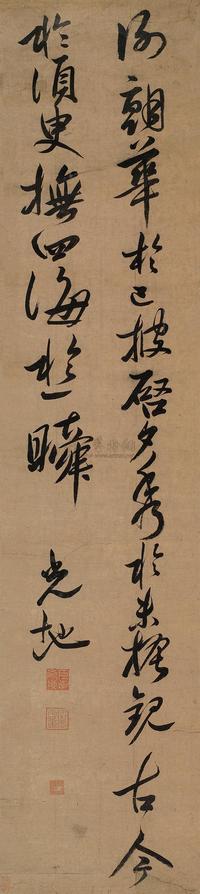 謝朝華於已披啓夕秀於未振觀古今
於須臾撫四海於一瞬
光地